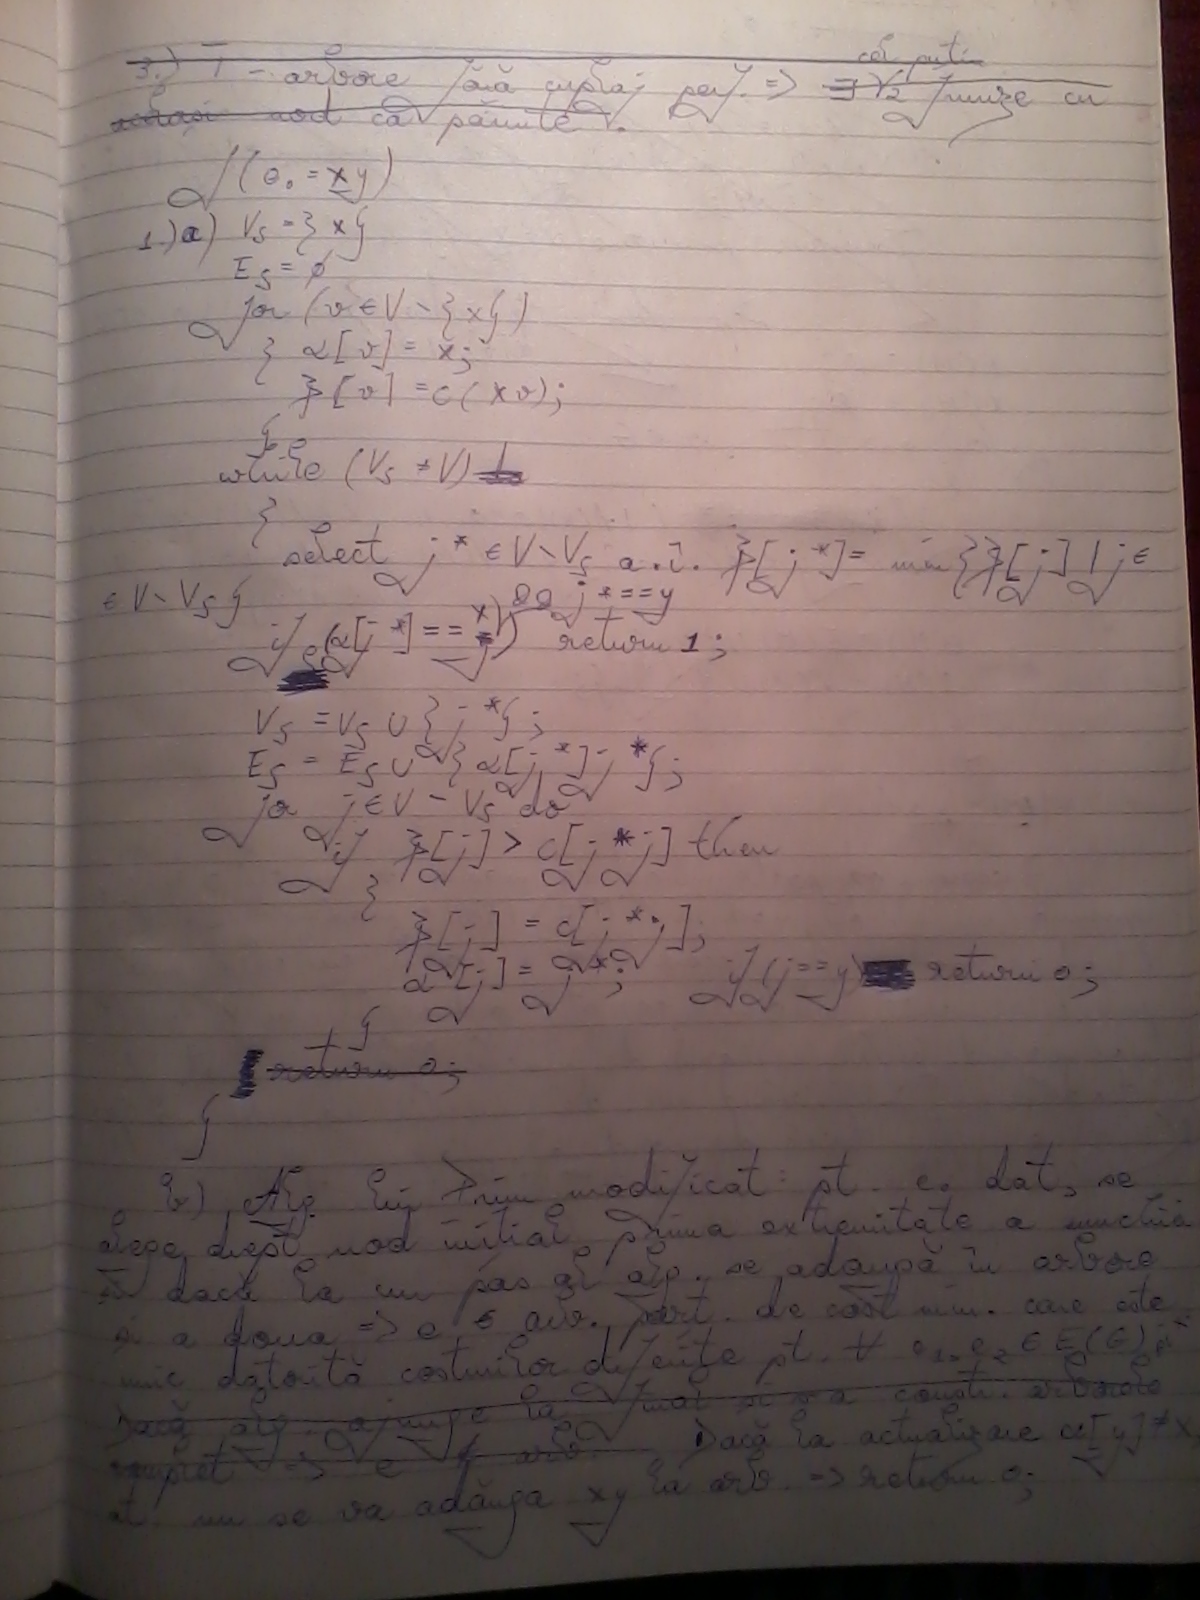 cel puțin
3.) T - arbore fără cuplaj perf. => ∃ 2 frunze cu
același nod ca părinte.
f(e₀ = xy)
1.)a) Vs = {x}
Es = ∅
for (v ∈ V \ {x})
{ α[v] = x;
β[v] = c(xv);
}
while (Vs ≠ V)
{
select j* ∈ V \ Vs a.î. β[j*] = min{β[j] | j ∈
∈ V \ Vs}
if (α[j*] == x && j* == y) return 1;
Vs = Vs ∪ {j*};
Es = Es ∪ {α[j*]j*};
for j ∈ V - Vs do
if β[j] > c[j*j] then
{
β[j] = c[j*j];
α[j] = j*; if (j==y) return 0;
}
return 0;
}
b) Alg. lui Prim modificat: pt. e₀ dat, se
alege drept nod inițial prima extremitate a muchiei
și dacă la un pas al alg. se adaugă în arbore
și a doua => e ∈ arb. parț. de cost min. care este
unic datorită costurilor diferite pt. ∀ e₁, e₂ ∈ E(G)
Dacă alg. ajunge la final și s-a constr. arborele
complet => e ∉ arb. Dacă la actualizare α[y] ≠ x,
at. nu se va adăuga xy la arb. => return 0;